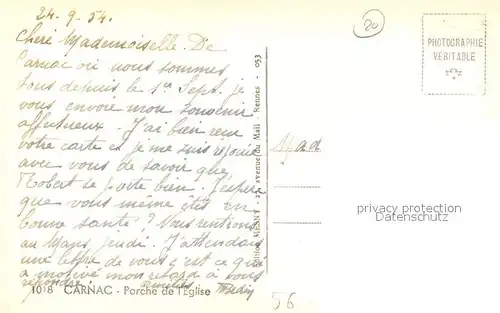 24.9.54.
20
Chère Mademoiselle. De
Carnac où nous sommes
tous depuis le 1er Sept. je
vous envoie mon souvenir
affectueux. J'ai bien reçu
votre carte et je me suis réjouie
avec vous de savoir que
Robert se porte bien. J'espère
que vous même êtes en
bonne santé? Vous rentrons
au Mans jeudi. J'attendais
une lettre de vous c'est ce qui
a motivé mon retard à vous
répondre.
1018 CARNAC - Porche de l'Eglise
avenue du Mail - Rennes - 053
PHOTOGRAPHIE
VÉRITABLE
Mad
privacy protection
Datenschutz
56